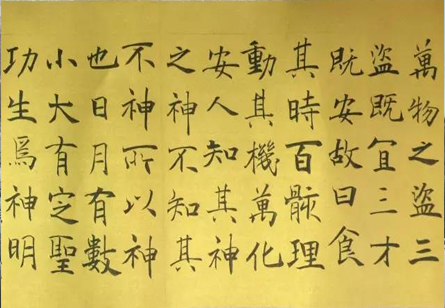 萬物之盜三
盜既宜三才
既安故曰食
其時百骸理
動其機萬化
安人知其神
之神不知其
不神所以神
也日月有數
小大有定聖
功生焉神明